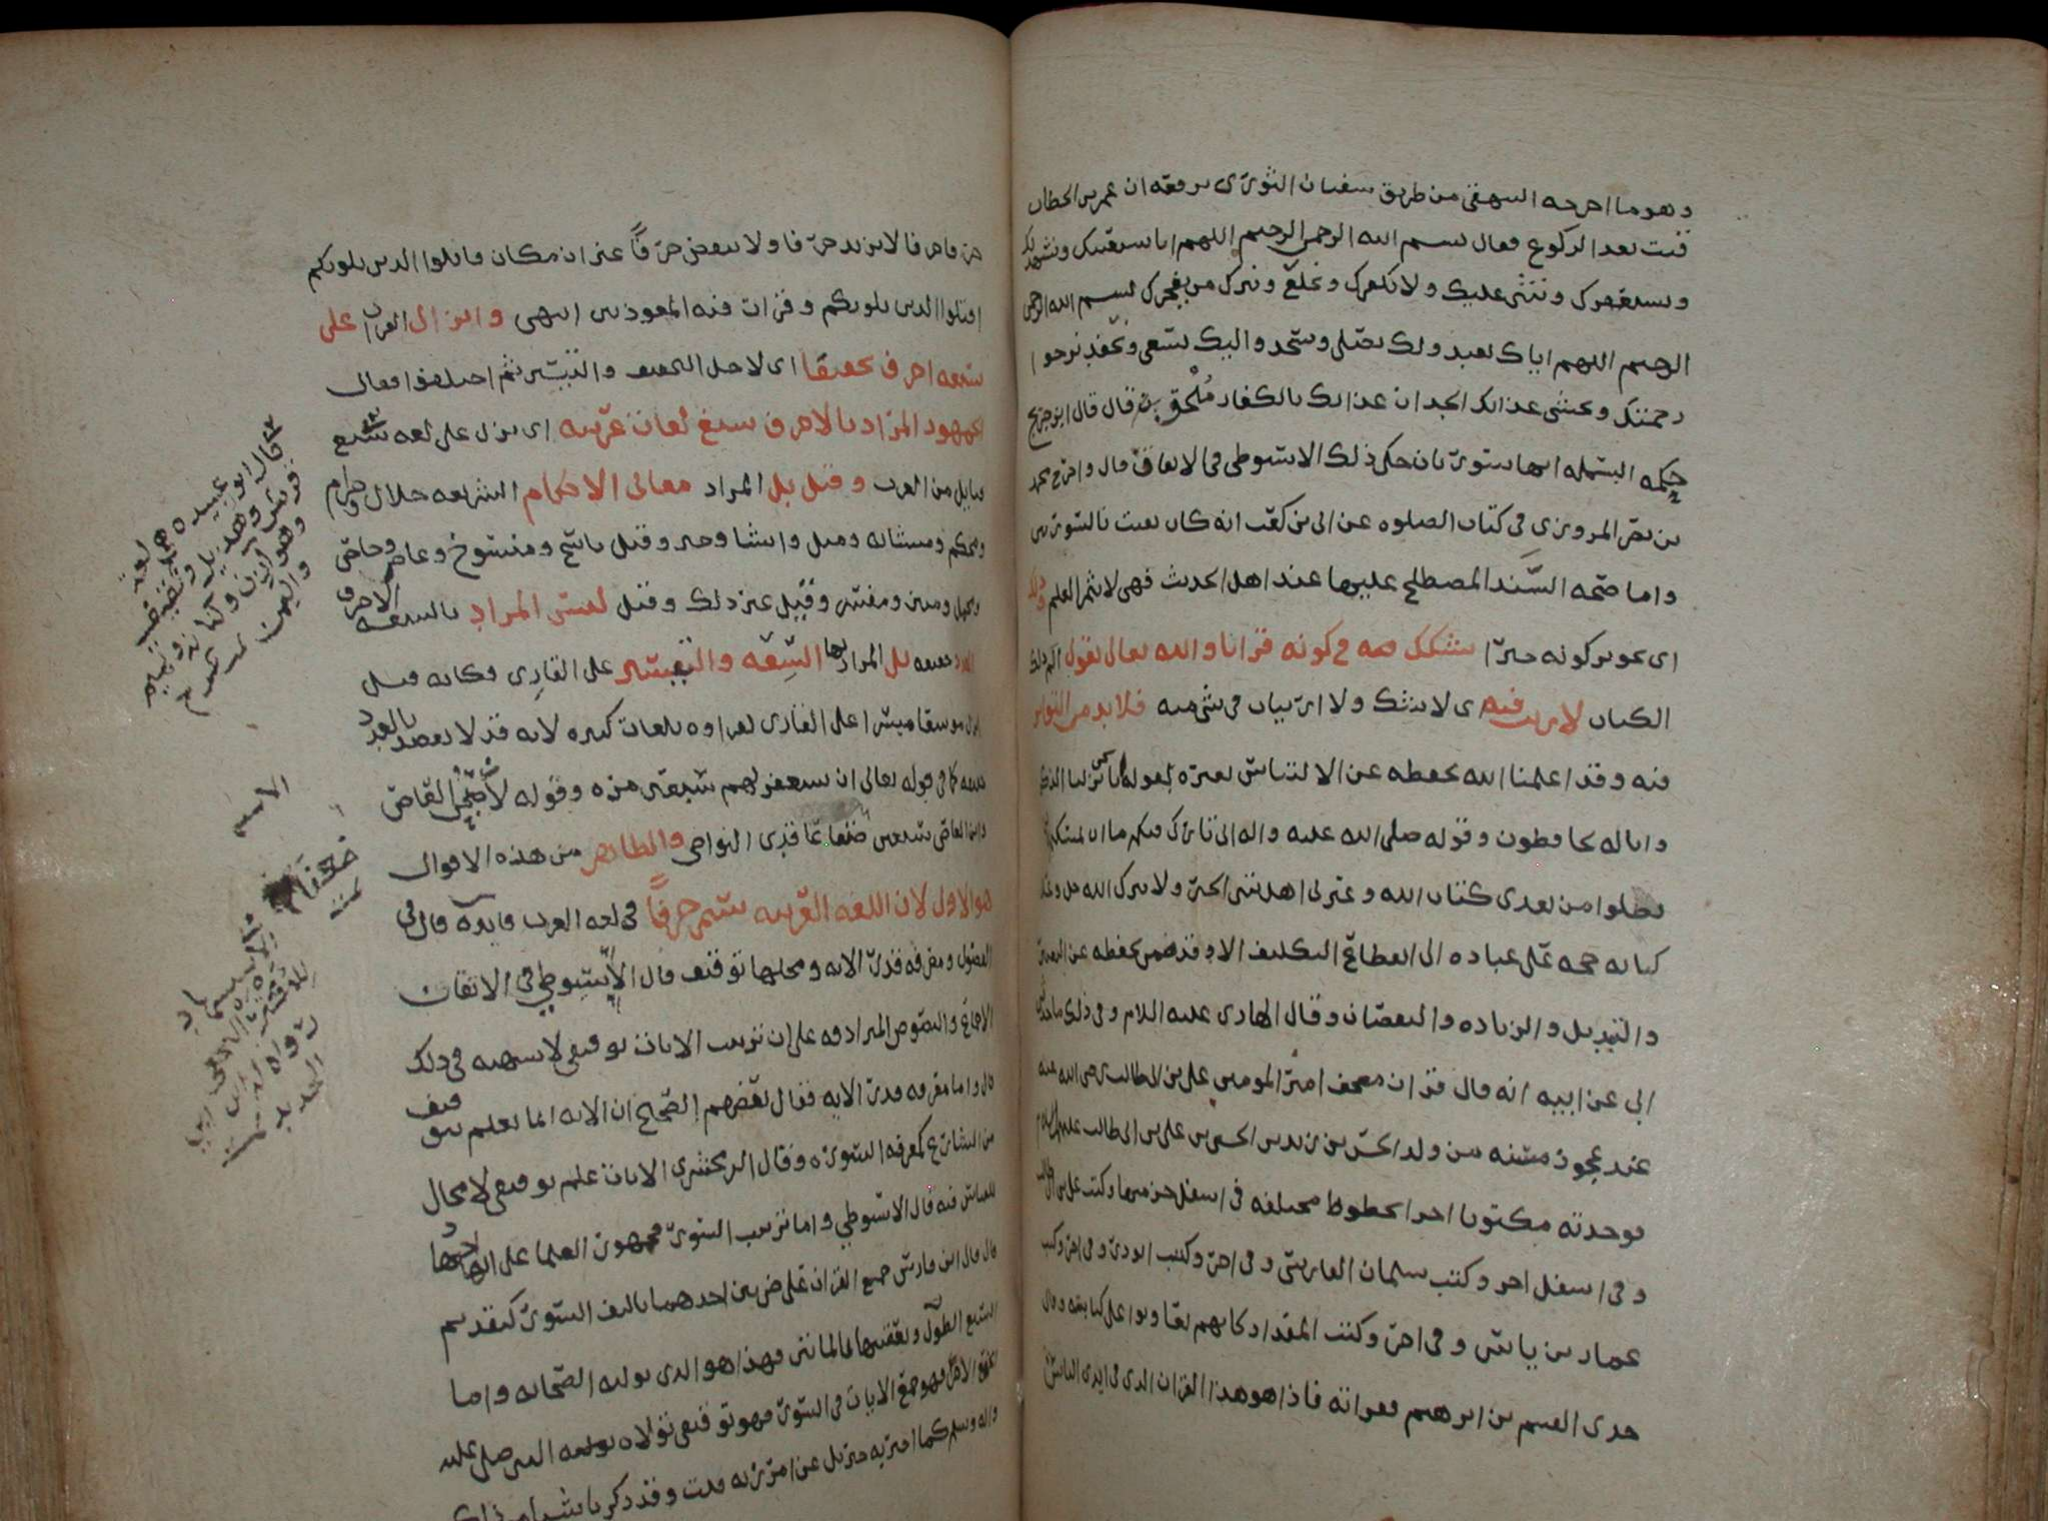 وهو ما اخرجه البيهقي من طريق سفيان الثوري يرفعه ان عمر بن الخطاب
قنت بعد الركوع فقال بسم الله الرحمن الرحيم اللهم انا نستعينك ونستهديك
ونستغفرك ونثني عليك ولا نكفرك ونخلع ونترك من يفجرك بسم الله الرحمن
الرحيم اللهم اياك نعبد ولك نصلي ونسجد واليك نسعى ونحفد نرجوا
رحمتك ونخشى عذابك الجد ان عذابك بالكفار مُلْحق قال قال ابن جريج
حكمه البسمله انها سورتان حكى ذلك الاسيوطي في الاتقان قال واخرج محمد
بن نصر المروزي في كتاب الصلوه عن ابي بن كعب انه كان يقنت بالسورتين
واما صحه السَّند المصطلح عليها عند اهل الحديث فهي لا تثمر العلم وذلك
اى تجويز كونه خبرًا تشكك فيه في كونه قرانا والله تعالى يقول الم ذلك
الكتاب لا ريب فيه اى لا شك ولا ارتياب في شي منه فلا بد من التواتر
فيه وقد اعلمنا الله بحفظه عن الالتباس بغيره بقوله انا نحن نزلنا الذكر
وانا له لحافظون وقوله صلى الله عليه واله اني تارك فيكم ما ان تمسكتم به لن
تضلوا من بعدي كتاب الله وعترتي اهل بيتي الخبر ولا يترك الله جل وعلا
كتابه حجه على عباده الى انقطاع التكليف الا وقد ضمن بحفظه عن التغيير
والتبديل والزياده والنقصان وقال الهادي عليه السلام وفي ذلك ما حدثني
ابي عن ابيه انه قال قران مصحف امير المومنين علي بن ابي طالب رضي الله عنه
عند عجوز مسنه من ولد الحسن بن زيد بن الحسن بن علي بن ابي طالب عليهم السلام
فوجدته مكتوبا اجزا بخطوط مختلفه في اسفل جز منها وكتب علي بن ابي طالب
وفي اسفل اخر وكتب سلمان الفارسي وفي اخر وكتب ابو ذر وفي اخر وكتب
عمار بن ياسر وفي اخر وكتب المقداد كانهم تعاونوا على كتابته وقال
جدي القسم بن ابرهيم فقراته فاذا هو هذا القران الذي في ايدي الناس
حرفا حرفا لا يزيد حرفا ولا ينقص حرفًا غير ان مكان قاتلوا الذين يلونكم
اقتلوا الذين يلونكم وقرات فيه المعوذتين انتهى وانزال القران على
سبعه احرف تخفيفا اى لاجل التخفيف والتيسير ثم اختلفوا فقال
الجمهور المراد بالاحرف سبع لغات عربيه اى نزل على لغه سبع
قبايل من العرب وقيل بل المراد معاني الاحكام الشريعه حلال وحرام
ومحكم ومتشابه ومثل وانشا وخبر وقيل ناسخ ومنسوخ وعام وخاص
ومجمل ومبين ومفسر وقيل غير ذلك وقيل ليس المراد بالسبعه الاحرف
العدد حقيقه بل المراد بها السِعَه والتيسير على القاري فكانه قيل
انزل موسعا ميسرا على القاري لقراوه بلغات كثيره لانه قد لا يقصد بالعدد
حقيقه كما في قوله تعالى ان تستغفر لهم سبعين مره وقوله لأصبحن العاصي
وابن العاصي سبعين ضعفا عاقدي النواصي والظاهر من هذه الاقوال
هو الاول لان اللغه العربيه تسمى حرفًا في لغه العرب فايده قال في
الفصول ومعرفه قدر الايه ومحلها توقيف قال الاسيوطي في الاتقان
الاجماع والنصوص المترادفه على ان ترتيب الايات توقيفي لا شبهه في ذلك
قال واما معرفه قدر الايه فقال بعضهم الصحيح ان الايه انما تعلم بتوقيف
من الشارع كمعرفه السوره وقال الزمخشري الايات علم توقيفي لا مجال
للقياس فيه قال الاسيوطي واما ترتيب السور فجمهور العلما على انه اجتهاد
قال قال ابن فارس جمع القران على ضربين احدهما تاليف السور كتقديم
السبع الطول وتعقيبها بالمائين فهذا هو الذي تولته الصحابه واما
الجمع الاخر فهو جمع الايات في السور فهو توقيفي تولاه النبي صلى عليه
واله وسلم كما اخبر به جبريل عن امر ربه قلت وقد ذكر
قال ابو عبيده هي لغة
قريش وهذيل وثقيف
وهوازن وكنانه وتميم
واليمن